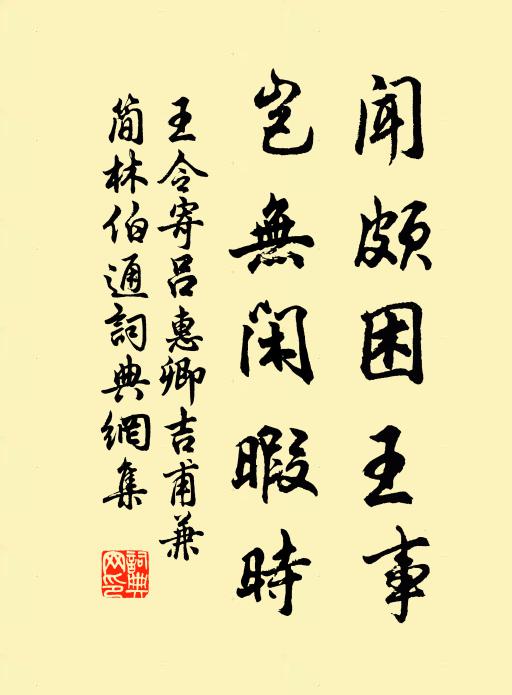 聞頗困王事
豈無閑暇時
王令寄呂惠卿吉甫兼
簡林伯通詞典網集
詞典
网印